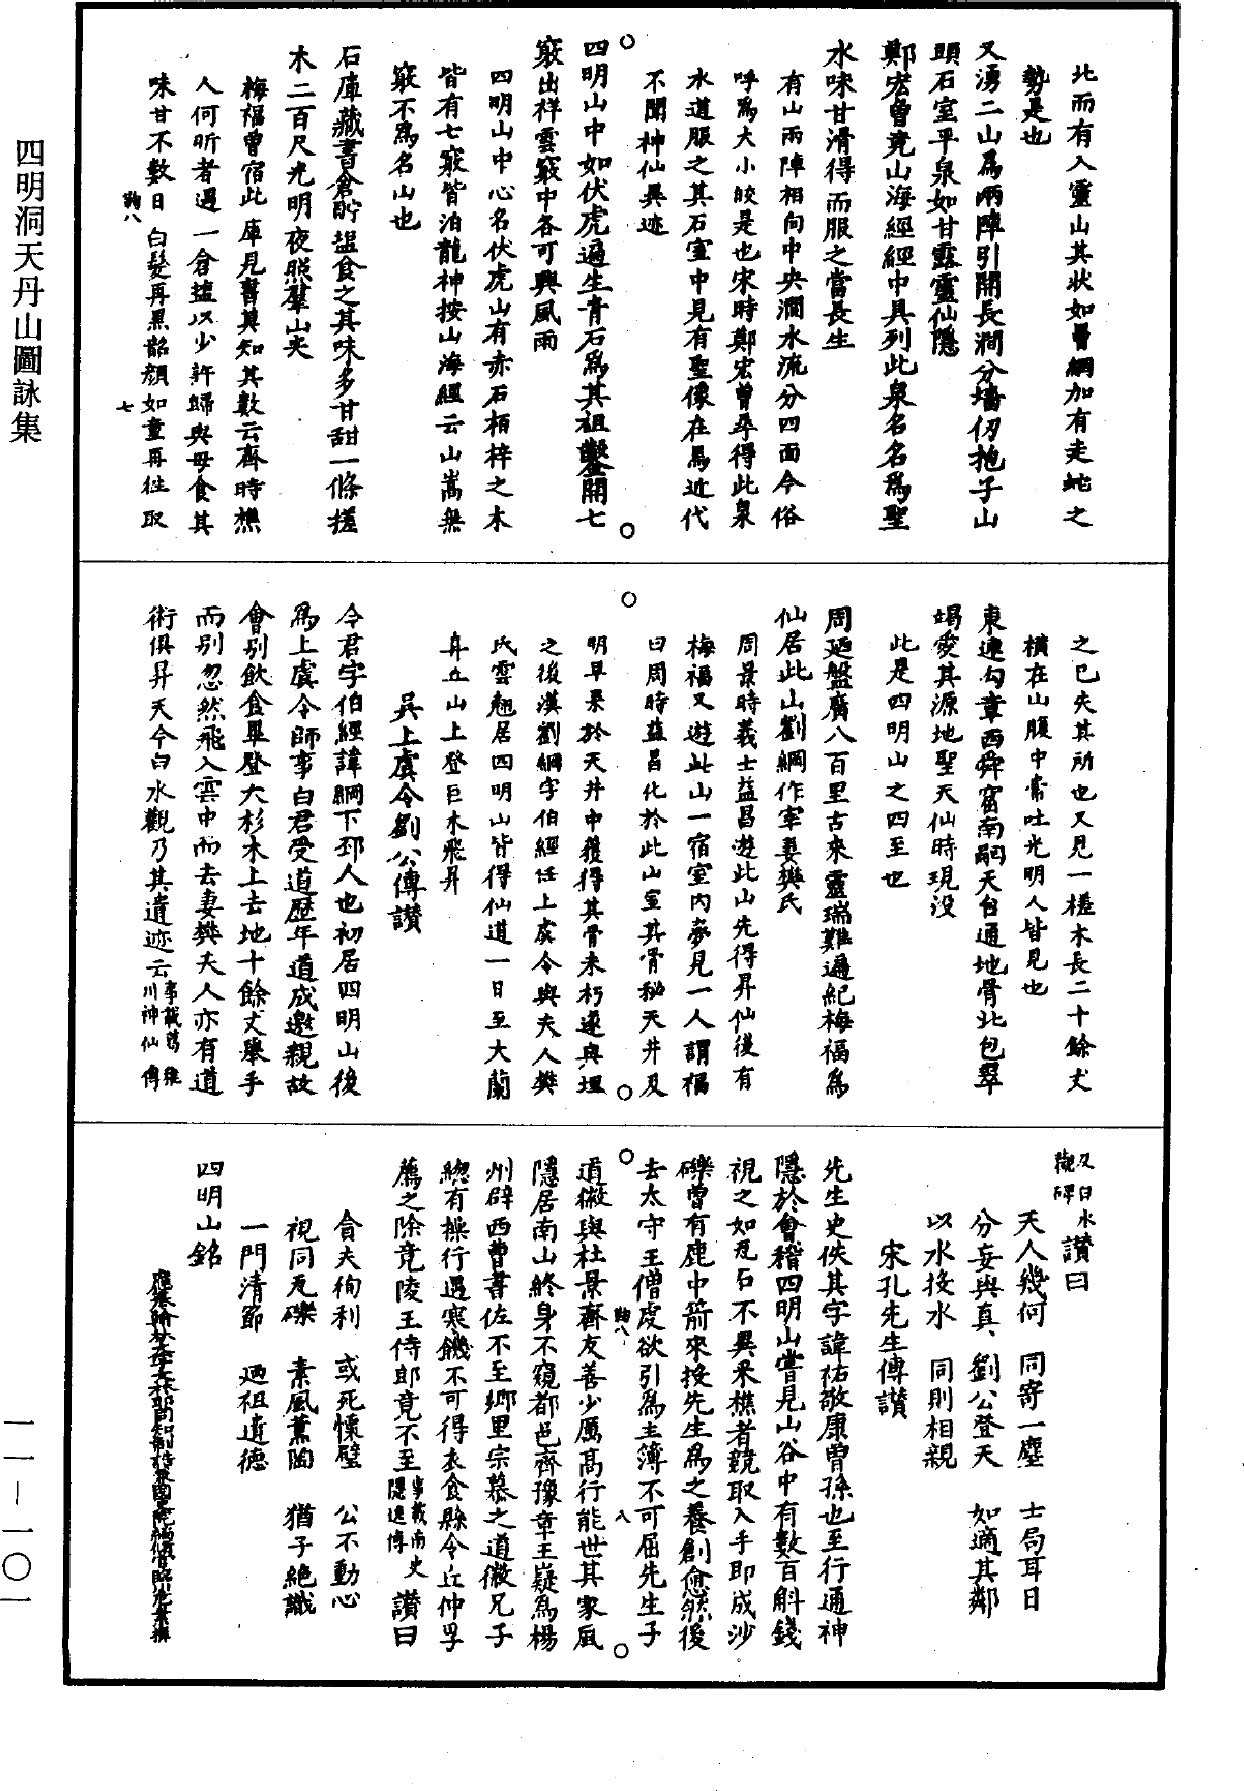 四明洞天丹山圖詠集
一一－一〇一
北而有入靈山其狀如罾網加有走蛇之
勢是也
又湧二山為兩陣引開長澗分墻仞抱子山
頭石室平泉如甘露靈仙隱
鄭宏曾竟山海經經中具列此泉名名為聖
水味甘滑得而服之當長生
有山兩陣相向中央澗水流分四面今俗
呼為大小皎是也宋時鄭宏曾尋得此泉
水道服之其石室中見有聖像在焉近代
不聞神仙異迹
四明山中如伏虎遍生青石為其祖鑿開七
竅出祥雲竅中各可興風雨
四明山中心名伏虎山有赤石栢梓之木
皆有七竅皆泊龍神按山海經云山嵩無
竅不為名山也
石庫藏書倉貯塩食之其味多甘甜一條搓
木二百尺光明夜照羣山夾
梅福曾宿此庫見書莫知其數云齊時樵
人何昕者遇一倉搵以少許歸與母食其
味甘不數日白髮再黑韶顏如童再往取
鞠八
七
之已失其所也又見一槎木長二十餘丈
橫在山腹中常吐光明人皆見也
東連勾章西舜窟南嗣天台通地骨北包翠
竭愛其源地聖天仙時現没
此是四明山之四至也
周廻盤廣八百里古來靈瑞難遍紀梅福為
仙居此山劉綱作宰妻樊氏
周景時義士益昌遊此山先得昇仙後有
梅福又遊此山一宿室内夢見一人謂福
曰周時益昌化於此山室其骨秘天井及
明早果於天井中獲得其骨未朽遂與埋
之後漢劉綱字伯經任上虞令與夫人樊
氏雲翹居四明山皆得仙道一日至大蘭
阜丘山上登巨木飛昇
吳上虞令劉公傳讃
令君字伯經諱綱下邳人也初居四明山後
為上虞令師事白君受道歷年道成邀親故
會别飲食畢登大杉木上去地十餘丈舉手
而别忽然飛入雲中而去妻樊夫人亦有道
術俱昇天今白水觀乃其遺迹云事載葛稚川神仙傳
又白水觀碑讃曰
天人幾何　同寄一塵　士局耳目
分妄與真　劉公登天　如適其鄰
以水投水　同則相親
宋孔先生傳讃
先生史佚其字諱祐敬康曾孫也至行通神
隱於會稽四明山嘗見山谷中有數百斛錢
視之如瓦石不異采樵者競取入手即成沙
礫曾有鹿中箭來投先生為之養創愈然後
去太守王僧虔欲引為主簿不可屈先生子
鞠八
八
道徽與杜景齊友善少厲高行能世其家風
隱居南山終身不窺都邑齊豫章王嶷為楊
州辟西曹書佐不至鄉里宗慕之道徽兄子
總有操行遇寒餓不可得衣食縣令丘仲孚
薦之除竟陵王侍郎竟不至事載南史隱逸傳讃曰
貪夫徇利　或死懷璧　公不動心
視同瓦礫　素風薰陶　猶子絶識
一門清節　廼祖遺德
四明山銘